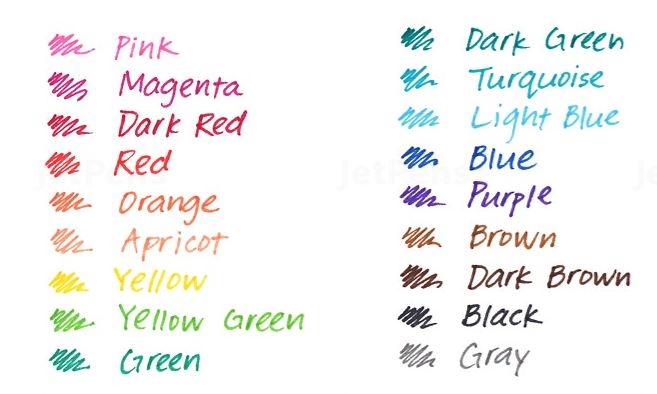 Pink
Magenta
Dark Red
Red
Orange
Apricot
Yellow
Yellow Green
Green
Dark Green
Turquoise
Light Blue
Blue
Purple
Brown
Dark Brown
Black
Gray
JetPens